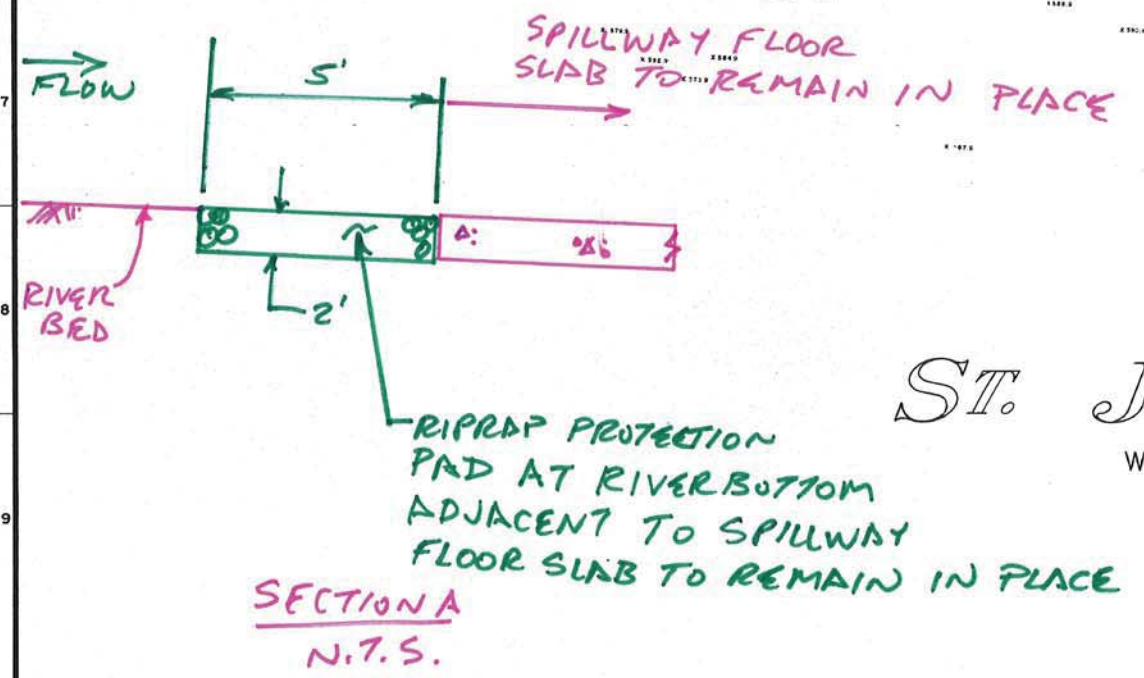 SPILLWAY FLOOR
SLAB TO REMAIN IN PLACE
FLOW
5'
7
RIVER
BED
2'
8
ST. J
W
RIPRAP PROTECTION
PAD AT RIVERBOTTOM
ADJACENT TO SPILLWAY
FLOOR SLAB TO REMAIN IN PLACE
9
SECTION A
N.T.S.